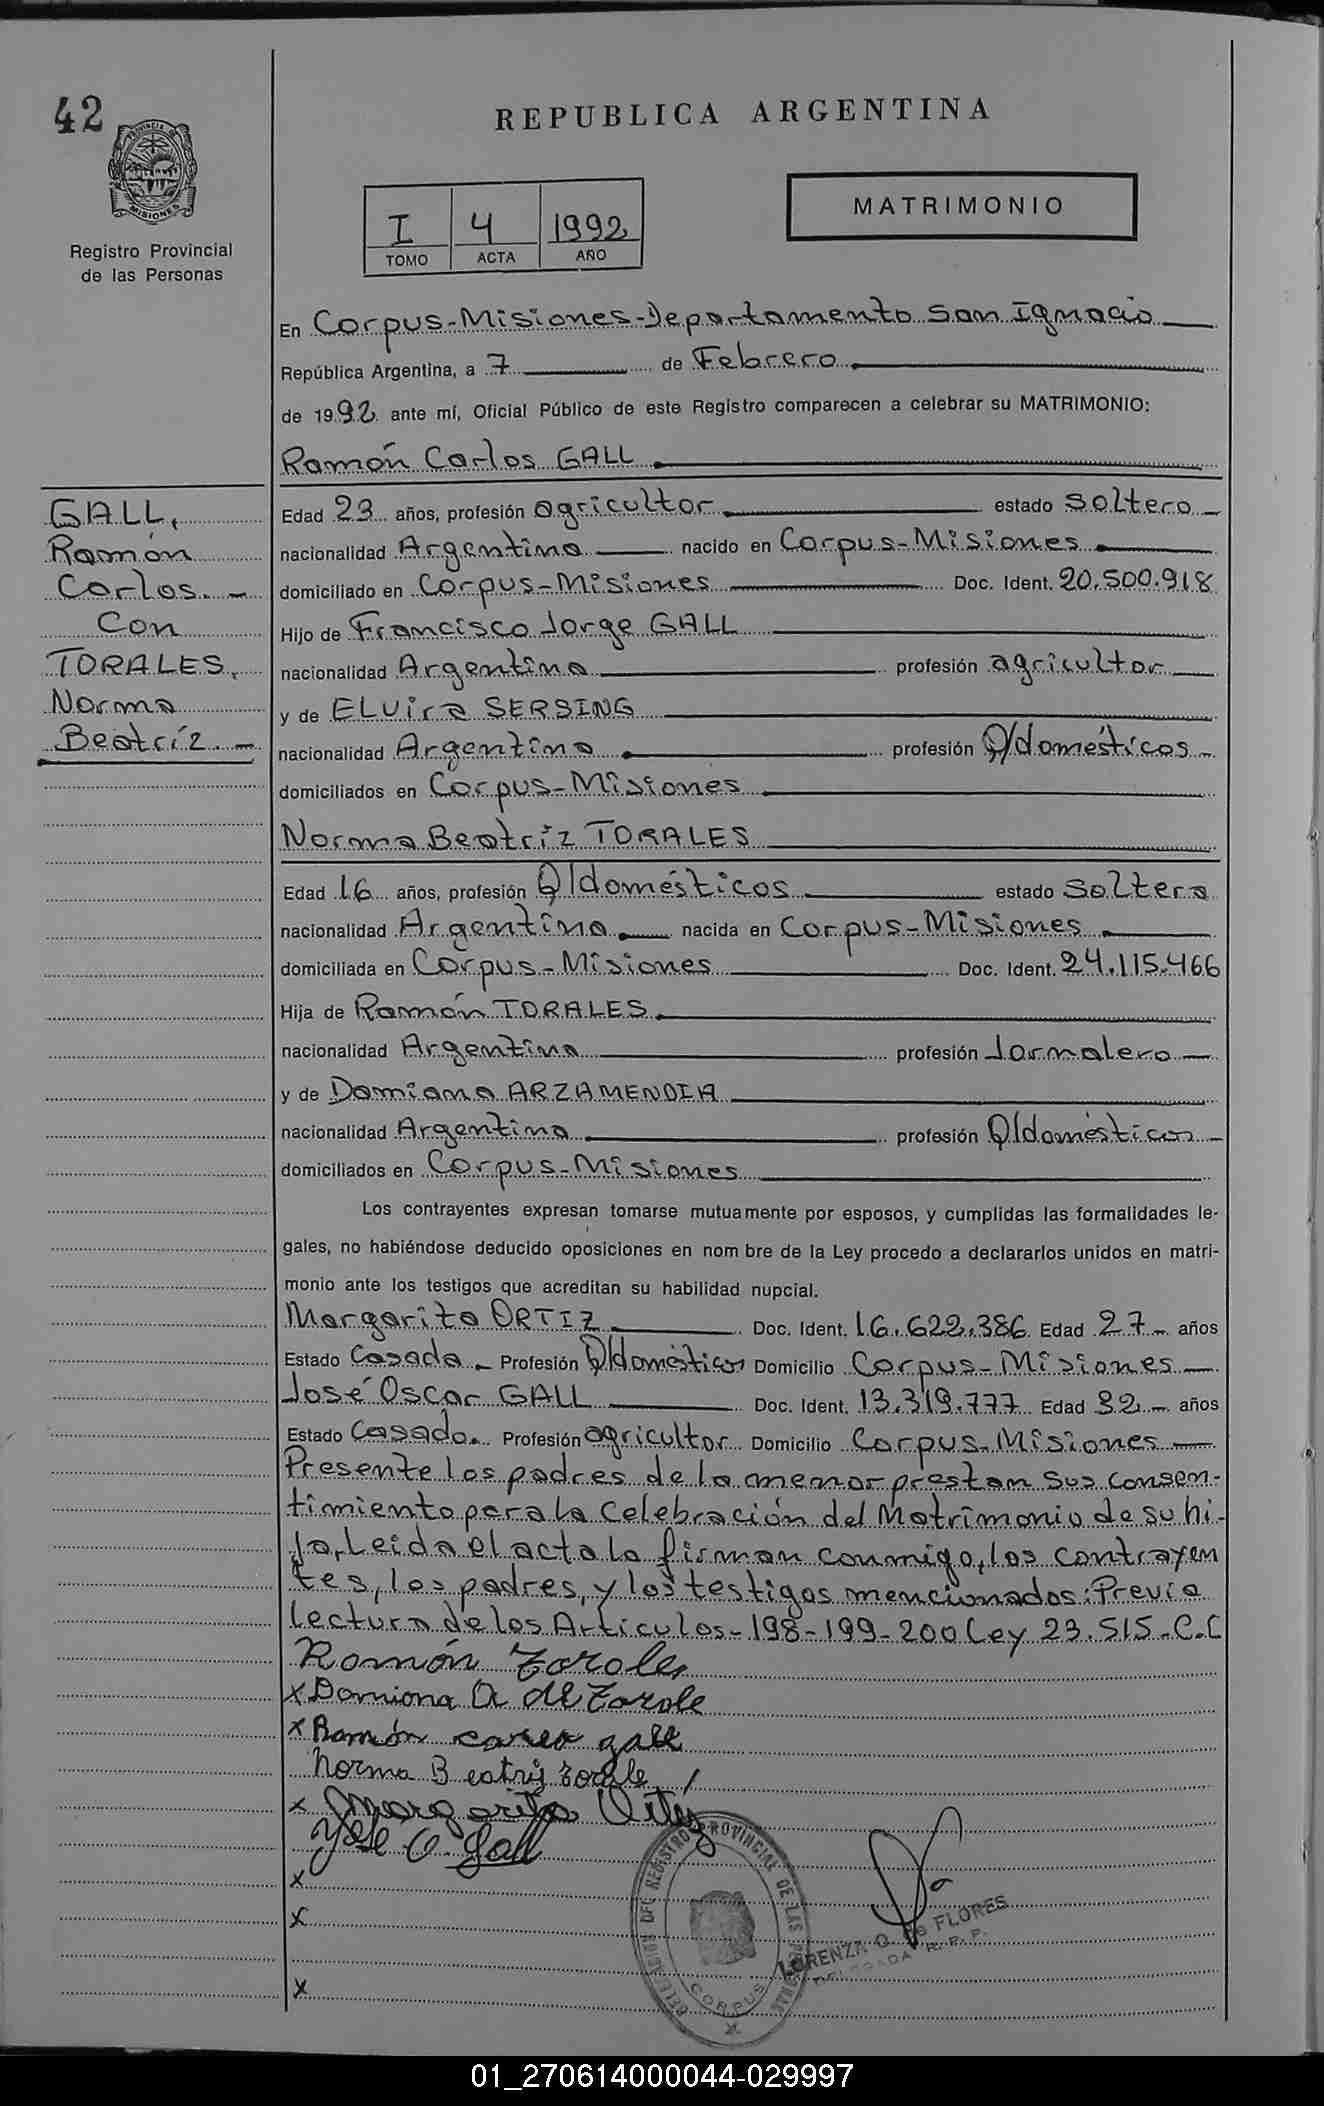 42
PROVINCIA DE
MISIONES
Registro Provincial
de las Personas
REPUBLICA ARGENTINA
I 4 1992
TOMO ACTA AÑO
MATRIMONIO
En Corpus-Misiones-Departamento San Ignacio
República Argentina, a 7 de Febrero
de 1992 ante mí, Oficial Público de este Registro comparecen a celebrar su MATRIMONIO:
Ramón Carlos GALL
GALL,
Ramón
Carlos.-
Con
TORALES,
Norma
Beatríz.-
Edad 23 años, profesión agricultor estado Soltero
nacionalidad Argentina nacido en Corpus-Misiones
domiciliado en Corpus-Misiones Doc. Ident. 20.500.918
Hijo de Francisco Jorge GALL
nacionalidad Argentina profesión agricultor
y de ELvira SERSING
nacionalidad Argentina profesión Q/domésticos-
domiciliados en Corpus-Misiones
Norma Beatríz TORALES
Edad 16 años, profesión Q/domésticos estado Soltera
nacionalidad Argentina nacida en Corpus-Misiones
domiciliada en Corpus-Misiones Doc. Ident. 24.115.466
Hija de Ramón TORALES
nacionalidad Argentina profesión Jornalero
y de Damiana ARZAMENDIA
nacionalidad Argentina profesión Q/domésticos
domiciliados en Corpus-Misiones
Los contrayentes expresan tomarse mutuamente por esposos, y cumplidas las formalidades le-
gales, no habiéndose deducido oposiciones en nom bre de la Ley procedo a declararlos unidos en matri-
monio ante los testigos que acreditan su habilidad nupcial.
Margarita ORTIZ Doc. Ident. 16.622.386 Edad 27 años
Estado Casada Profesión Q/domésticos Domicilio Corpus-Misiones
José Oscar GALL Doc. Ident. 13.319.777 Edad 32 años
Estado Casado. Profesión agricultor Domicilio Corpus-Misiones
Presente los padres de la menor prestan sus consen-
timiento para la Celebración del Matrimonio de su hi-
ja, Leida el acta la firman conmigo, los contrayen
tes, los padres, y los testigos mencionados: Previa
lectura de los Artículos-198-199-200 Ley 23.515.-C.C
Ramón Torales
x Damiana A de Torale
x Ramón carlo gall
Norma Beatriz torale
x Margarita Ortiz
José O. Gall
x
x
x
DELEGACION DEL REGISTRO PROVINCIAL DE LAS PERSONAS
CORPUS
LORENZA O. de FLORES
DELEGADA R. P. P.
01_270614000044-029997